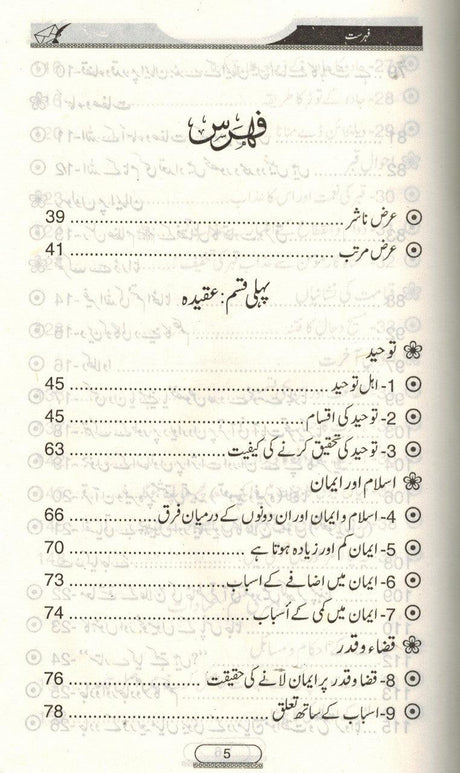 فہرست
فہرس
عرض ناشر 39
عرض مرتب 41
پہلی قسم: عقیدہ
توحید
1- اہل توحید 45
2- توحید کی اقسام 45
3- توحید کی تحقیق کرنے کی کیفیت 63
اسلام اور ایمان
4- اسلام و ایمان اور ان دونوں کے درمیان فرق 66
5- ایمان کم اور زیادہ ہوتا ہے 70
6- ایمان میں اضافے کے اسباب 73
7- ایمان میں کمی کے أسباب 74
قضاء و قدر
8- قضا و قدر پر ایمان لانے کی حقیقت 76
9- اسباب کے ساتھ تعلق 78
5